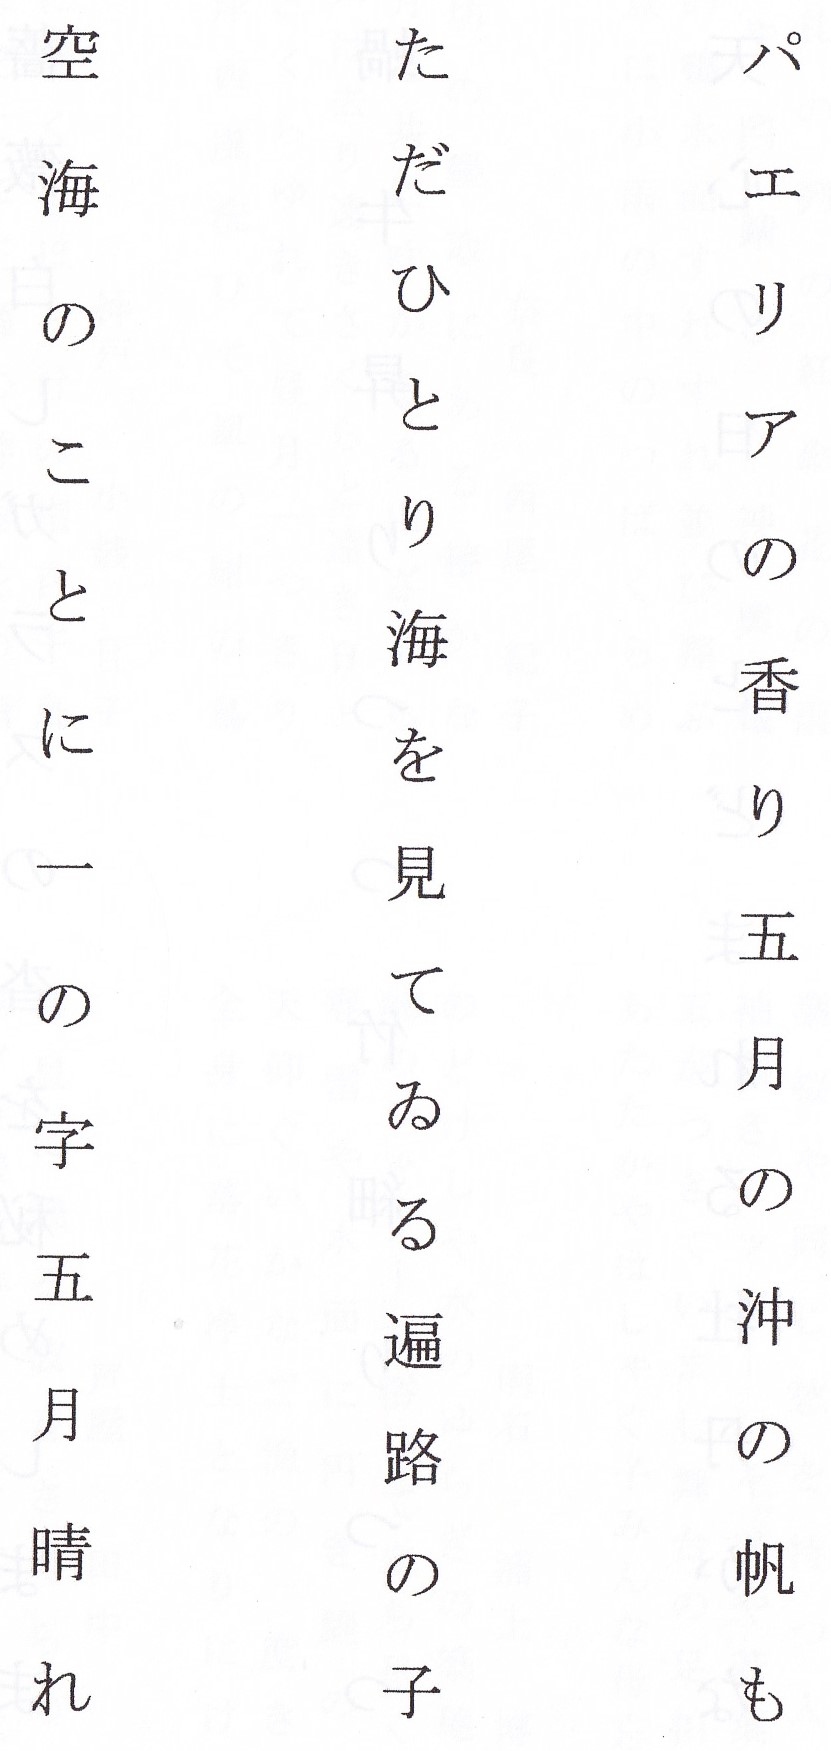 パエリアの香り五月の沖の帆も
ただひとり海を見てゐる遍路の子
空海のことに一の字五月晴れ